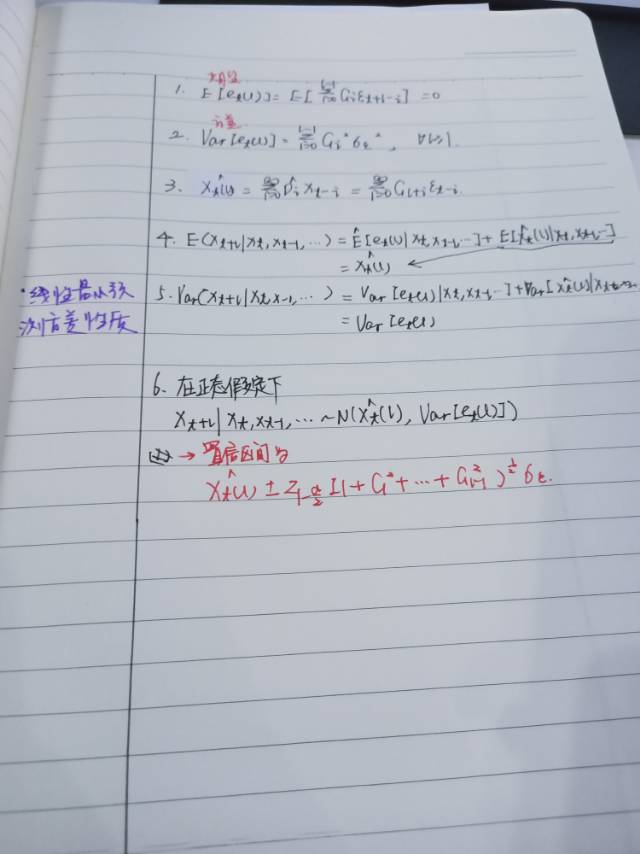 1. E[e_t(l)] = E[∑_{i=0}^{l-1} G_i ε_{t+l-i}] = 0
方差
2. Var[e_t(l)] = ∑_{i=0}^{l-1} G_i² σ_ε², ∀l≥1.
3. x̂_t(l) = ∑_{i=0}^{∞} D̂_i x_{t-i} = ∑_{i=0}^{∞} G_{l+i} ε_{t-i}
4. E(x_{t+l}|x_t, x_{t-1}, …) = E[e_t(l)|x_t, x_{t-1}, …] + E[x̂_t(l)|x_t, x_{t-1}, …]
= x̂_t(l)
·线性最小预
测方差性质
5. Var(x_{t+l}|x_t, x_{t-1}, …) = Var[e_t(l)|x_t, x_{t-1}, …] + Var[x̂_t(l)|x_t, x_{t-1}, …
= Var[e_t(l)]
6. 在正态假定下
x_{t+l}|x_t, x_{t-1}, … ~ N(x̂_t(l), Var[e_t(l)])
→ 置信区间为
x̂_t(l) ± z_{1-α/2} [1 + G_1² + … + G_{l-1}²)^{1/2} σ_ε.